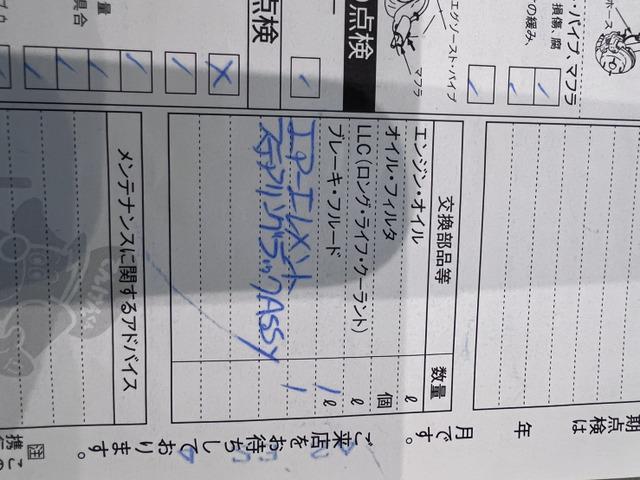 ホース
・パイプ、マフラ
の緩み、
損傷、腐
エグゾースト・パイプ
マフラ
の点検
点検
量
具合
交換部品等
数量
エンジン・オイル
ℓ
オイル・フィルタ
個
LLC(ロング・ライフ・クーラント)
ℓ
ブレーキ・フルード
1 ℓ
エアーエレメント
1
ステアリングラックASSY
メンテナンスに関するアドバイス
期
点検は
年
月です。
ご来店をお待ちしております。
注
この
携